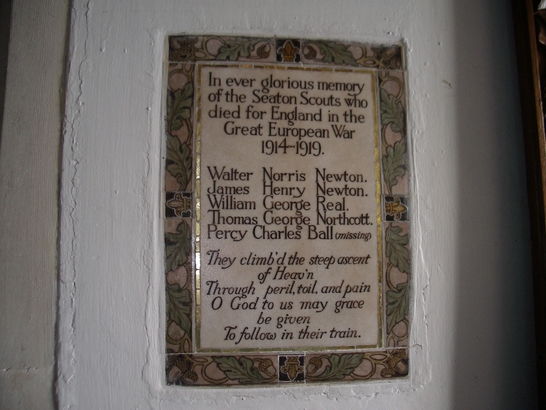 In ever glorious memory
of the Seaton Scouts who
died for England in the
Great European War
1914-1919.
Walter Norris Newton.
James Henry Newton.
William George Real.
Thomas George Northcott.
Percy Charles Ball (missing)
They climb'd the steep ascent
of Heav'n
Through peril, toil, and pain
O God to us may grace
be given
To follow in their train.